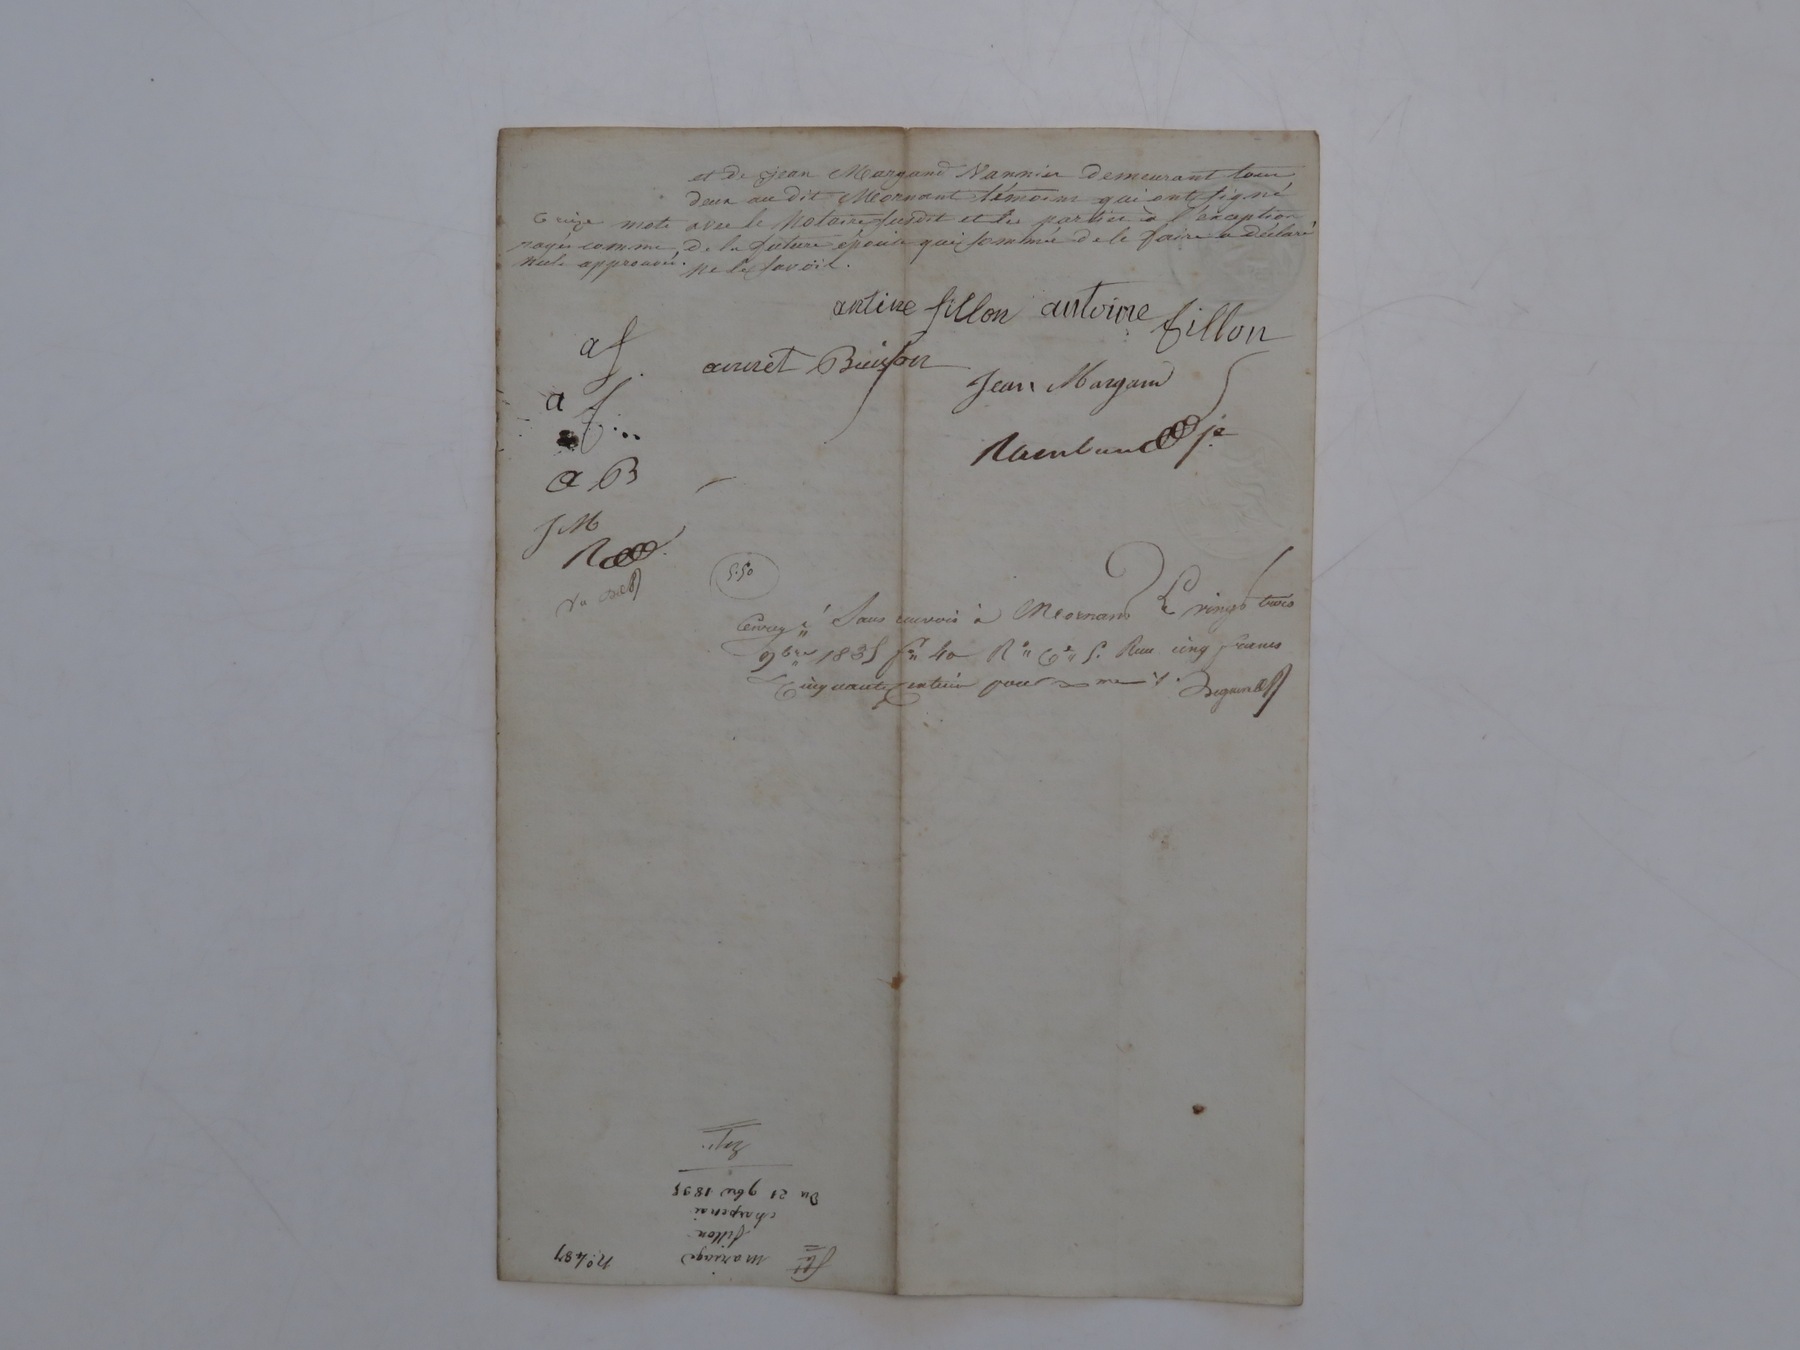 et de jean Margand Vannier demeurant tous
deux au dit Mornant témoins qui ont signé
avec le Notaire susdit et les parties à l'exception
de la future épouse qui sommée de le faire a déclaré
ne le savoir.
treize mots
rayés comme
nuls approuvés.
antine fillon antoine fillon
Buisson
Jean Margand
af.
a f
a B
JM
R
Vu
5.50
Enregé Sans renvoi à Mornant Le vingt trois
9bre 1835 fo 40 Ro Ce 5. Reçu cinq francs
Cinquante Centimes pour
No. 487
mariage
fillon
charpenai
Du 21 9bre 1835
Exp.